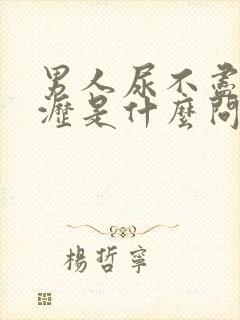 男人尿不盡
瀝是什麼問
楊哲寧